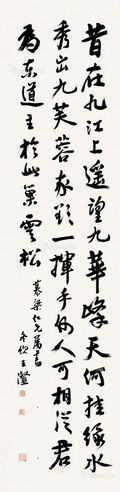 昔在九江上遥望九華峰天河挂綠水
秀出九芙蓉我欲一揮手何人可相從君
為東道主於此巢雲松
慕渠仁兄屬書
冬飲王瀣